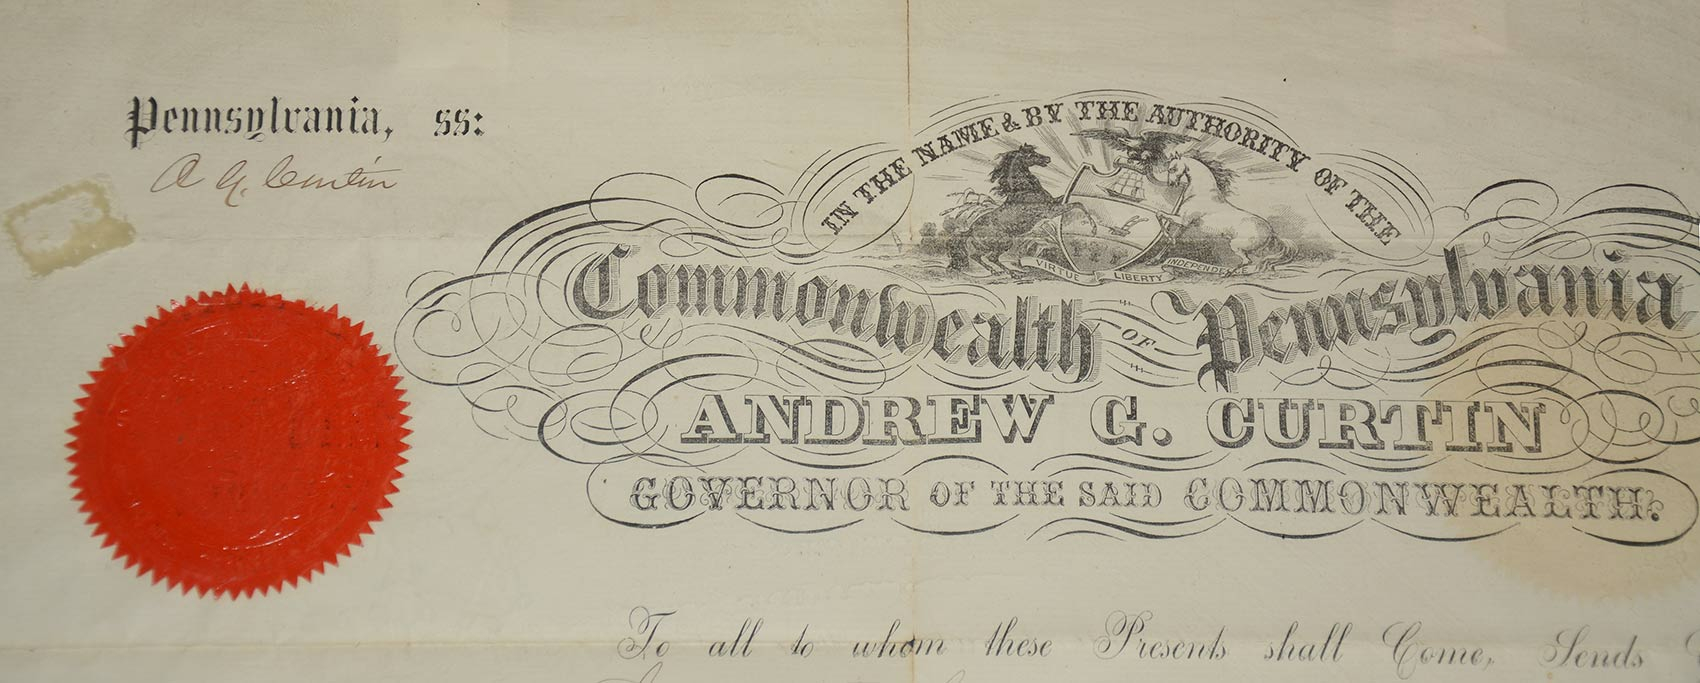 Pennsylvania, ss:
A G. Curtin
IN THE NAME & BY THE AUTHORITY OF THE
VIRTUE LIBERTY INDEPENDENCE
Commonwealth OF Pennsylvania
ANDREW G. CURTIN
GOVERNOR OF THE SAID COMMONWEALTH.
To all to whom these Presents shall Come, Sends